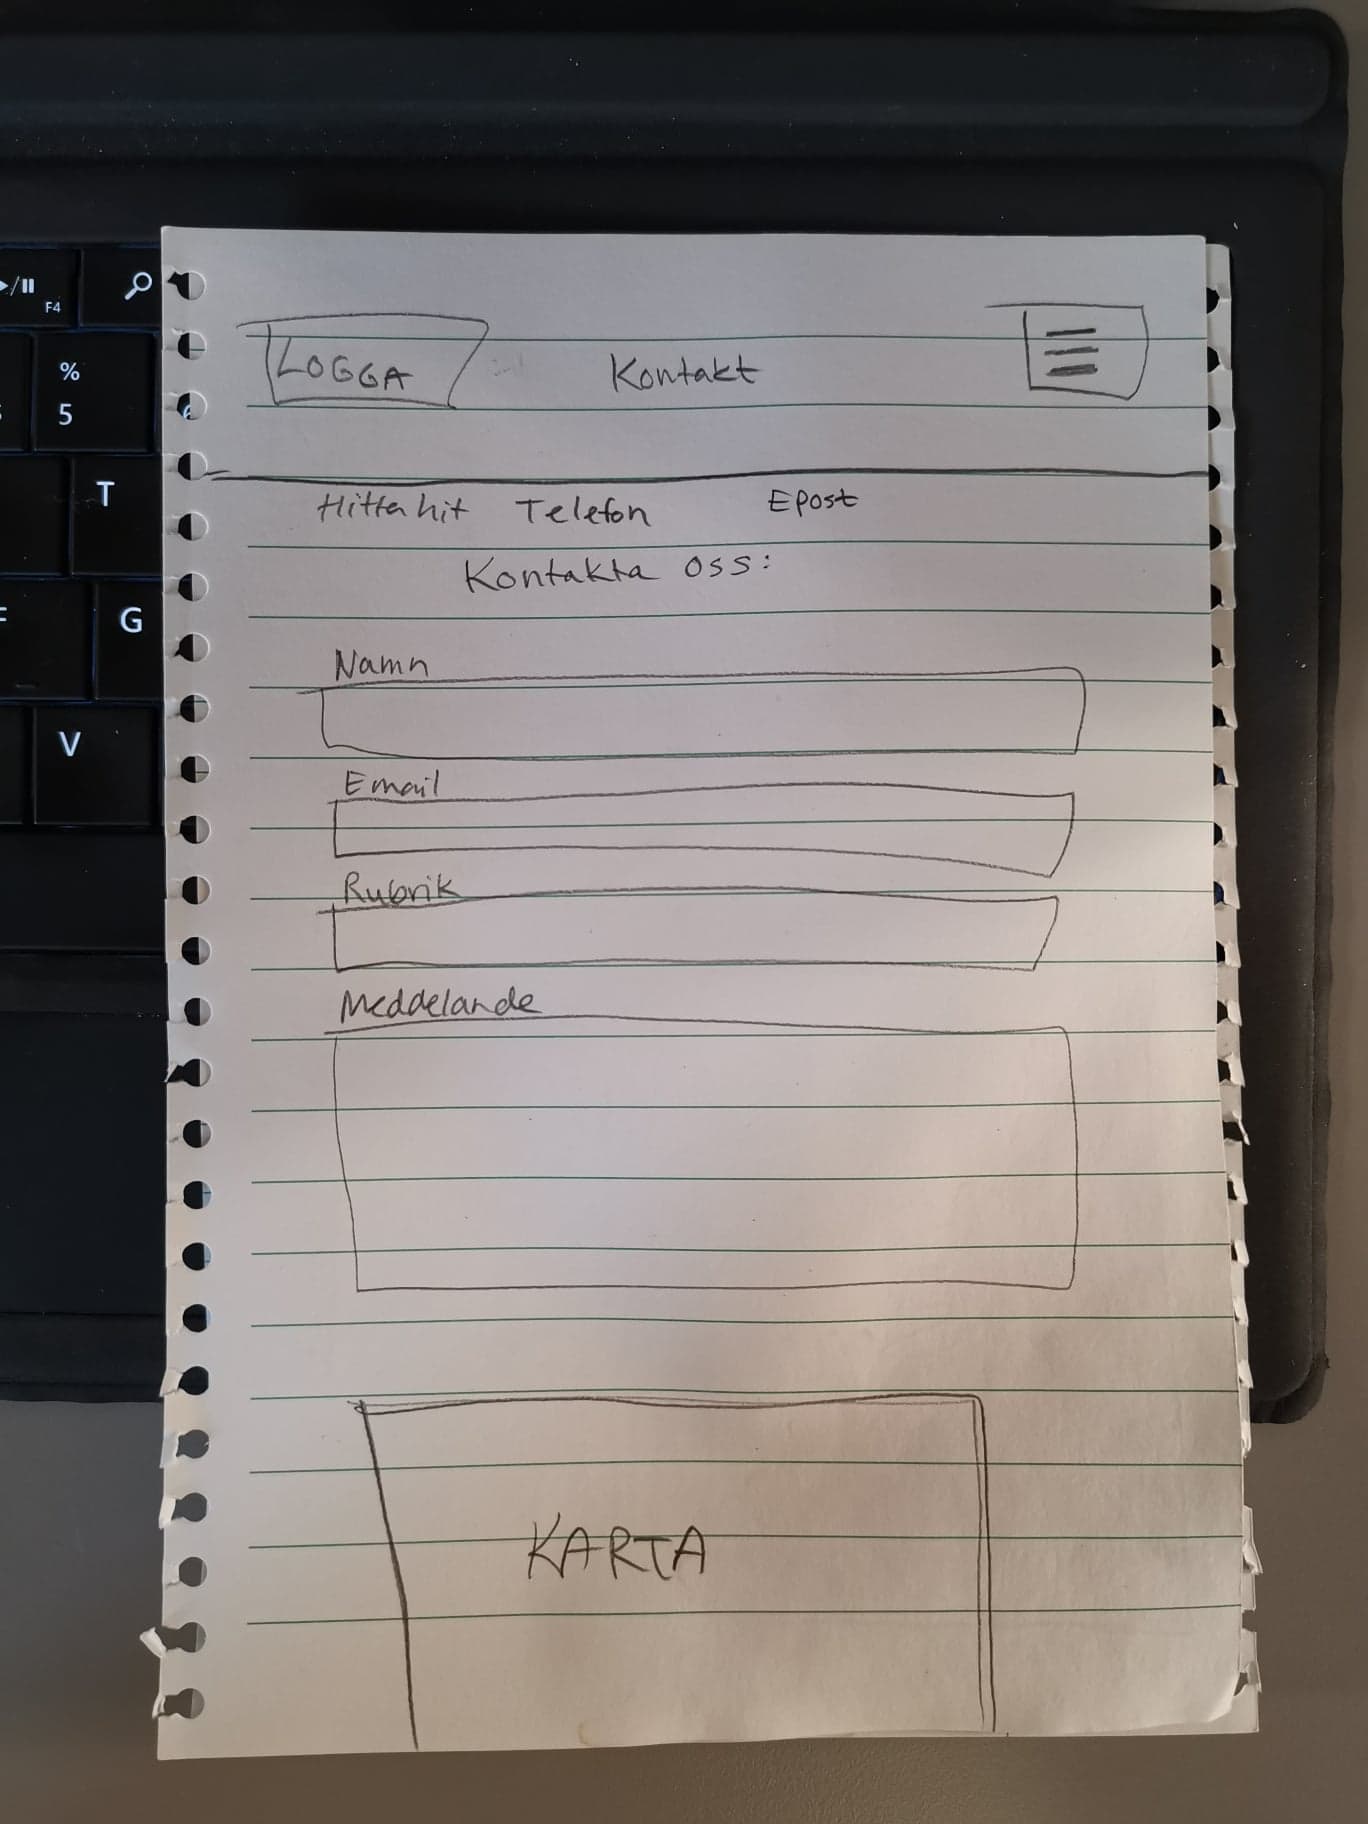 F4
%
5
T
G
V
LOGGA Kontakt
Hitta hit Telefon Epost
Kontakta oss:
Namn
Email
Rubrik
Meddelande
KARTA